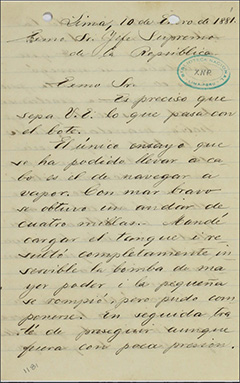 Lima, 10 de Enero de 1881.
Exmo Sr. Jefe Supremo
de la República
Exmo Sr.
Es preciso que
sepa V.E. lo que pasa con
el bote.
El único ensayo que
se ha podido llevar a ca-
bo es el de navegar a
vapor. Con mar bravo
se obtuvo un andar de
cuatro millas. Mandé
cargar el tanque i re-
sultó completamente in
servible la bomba de ma
yor poder i la pequeña
se rompió, pero pudo com
ponerse. En seguida tra
té de proseguir aunque
fuera con poca presión.